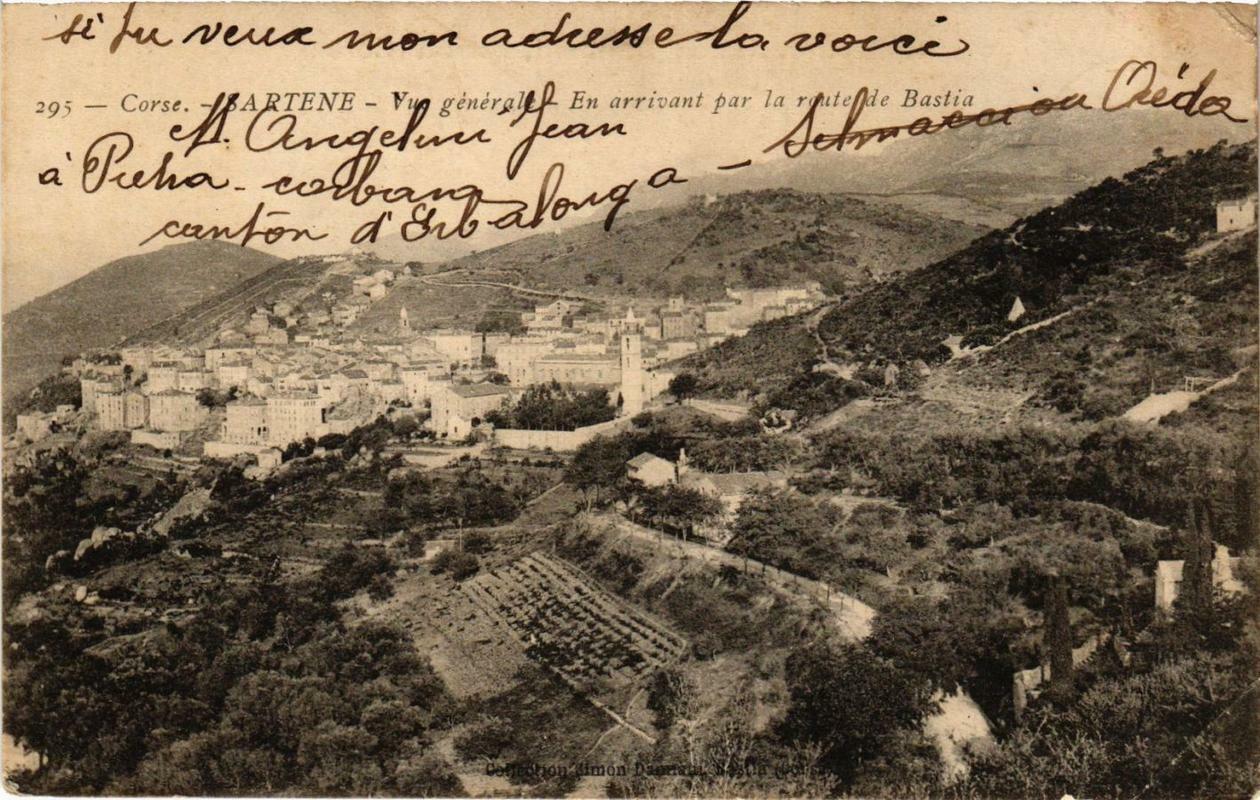 si tu veux mon adresse la voici
295 — Corse. - SARTENE - Vue générale - En arrivant par la route de Bastia
M. Angelini Jean
à Pietra - corbara -
canton d'Erbalonga
Collection Simon Damiani, Bastia (Corse)